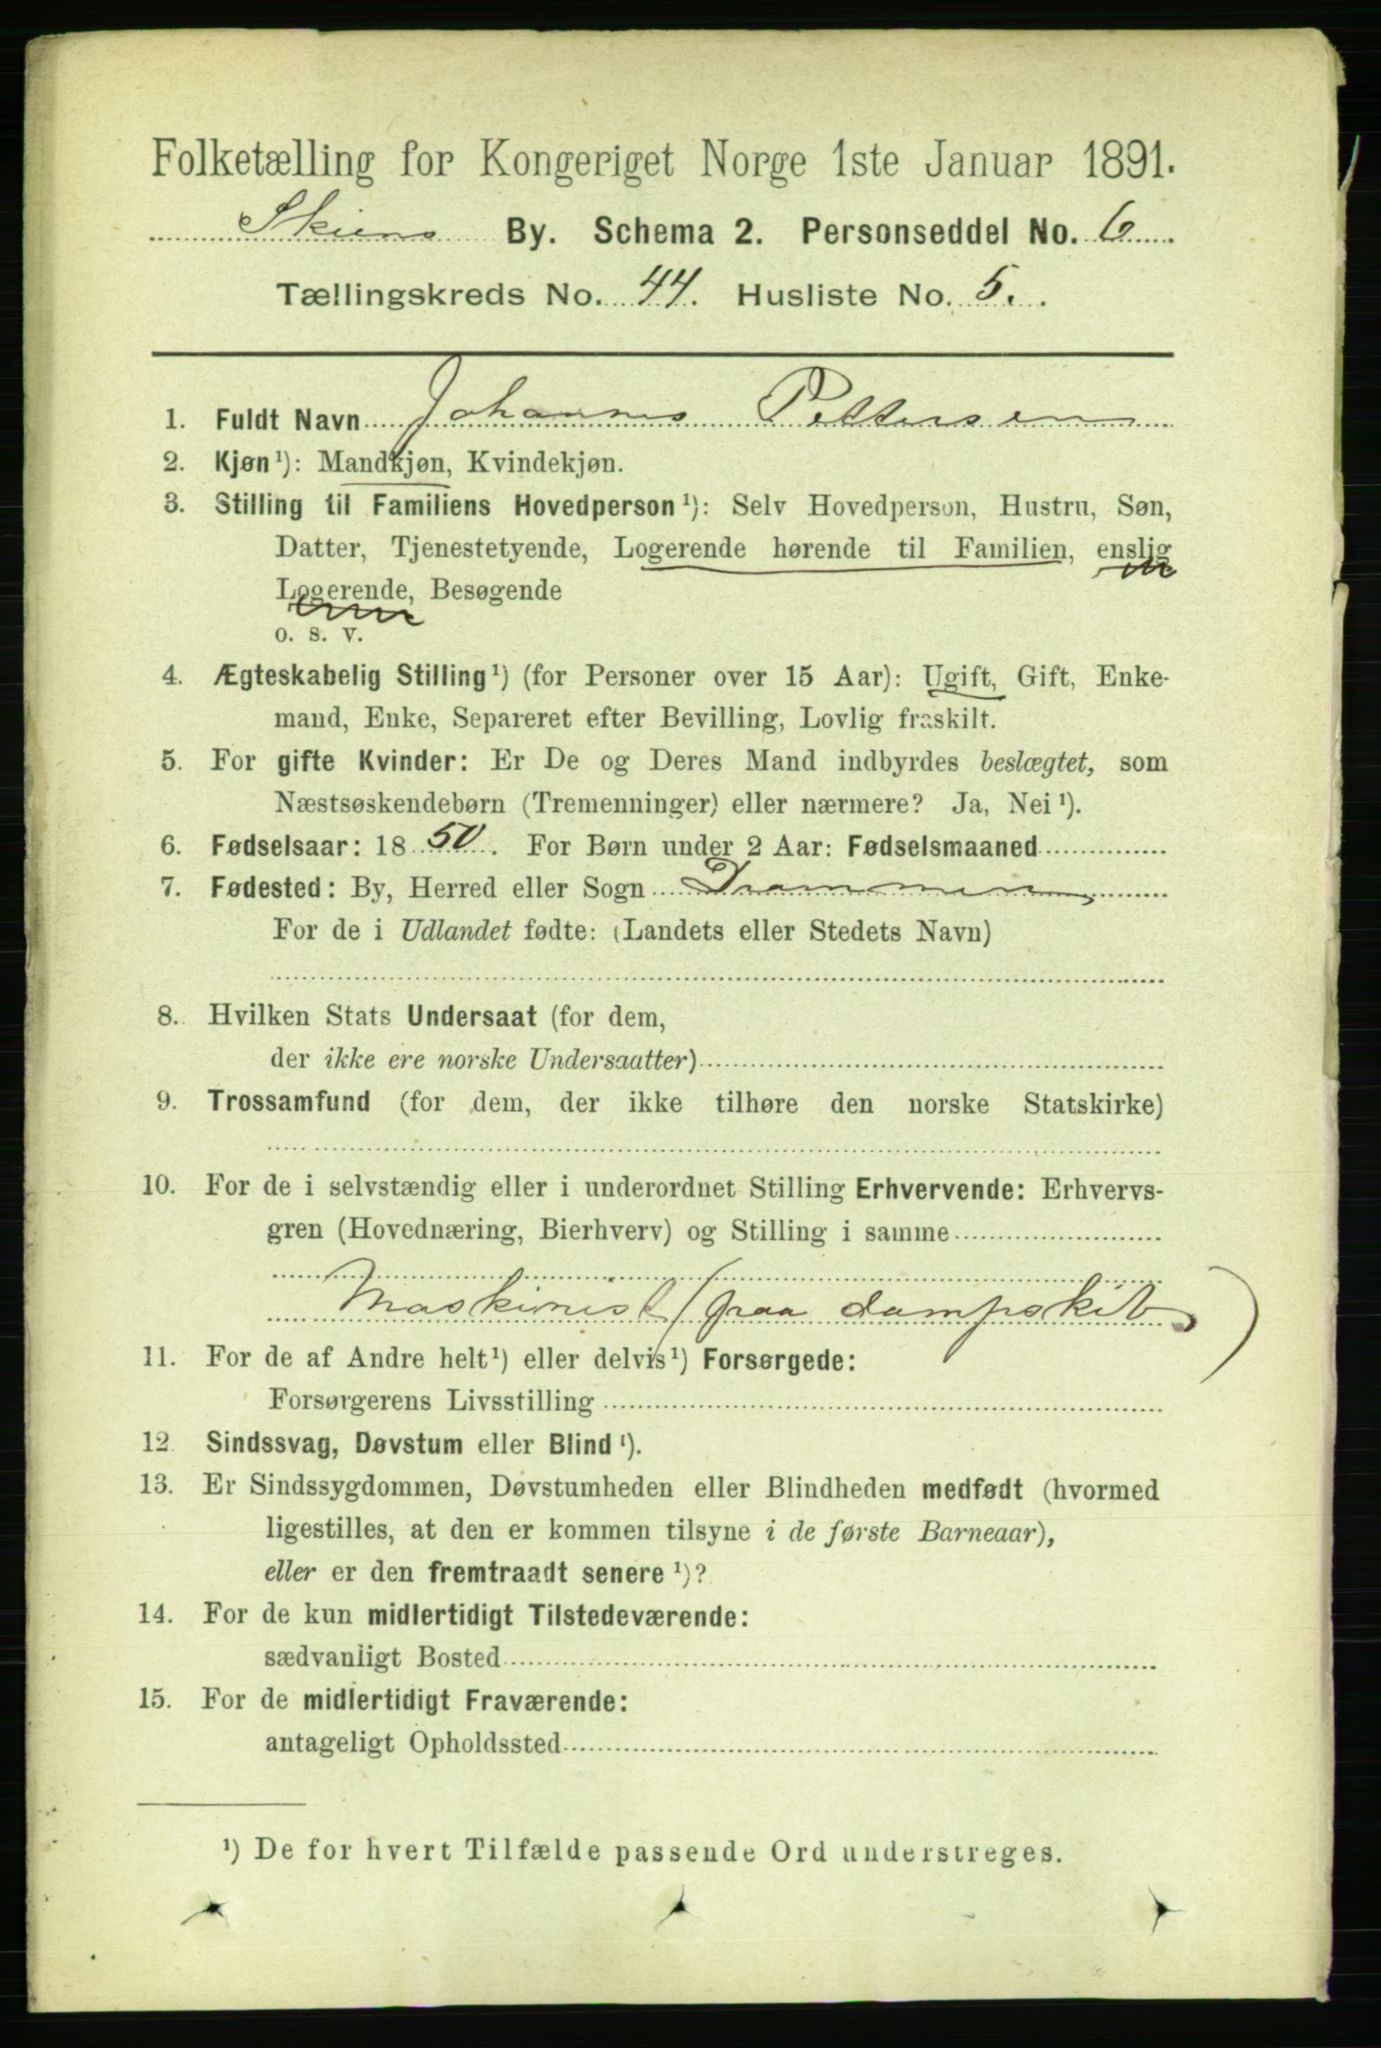 Folketælling for Kongeriget Norge 1ste Januar 1891.
Skiens By. Schema 2. Personseddel No. 6
Tællingskreds No. 44. Husliste No. 5.
1. Fuldt Navn Johannes Pettersen
2. Kjøn¹): Mandkjøn, Kvindekjøn.
3. Stilling til Familiens Hovedperson¹): Selv Hovedperson, Hustru, Søn,
Datter, Tjenestetyende, Logerende hørende til Familien, enslig
Logerende, Besøgende
o. s. v.
4. Ægteskabelig Stilling¹) (for Personer over 15 Aar): Ugift, Gift, Enke-
mand, Enke, Separeret efter Bevilling, Lovlig fraskilt.
5. For gifte Kvinder: Er De og Deres Mand indbyrdes beslægtet, som
Næstsøskendebørn (Tremenninger) eller nærmere? Ja, Nei¹).
6. Fødselsaar: 1850. For Børn under 2 Aar: Fødselsmaaned
7. Fødested: By, Herred eller Sogn Drammen
For de i Udlandet fødte: (Landets eller Stedets Navn)
8. Hvilken Stats Undersaat (for dem,
der ikke ere norske Undersaatter)
9. Trossamfund (for dem, der ikke tilhøre den norske Statskirke)
10. For de i selvstændig eller i underordnet Stilling Erhvervende: Erhvervs-
gren (Hovednæring, Bierhverv) og Stilling i samme
Maskinist (paa dampskib)
11. For de af Andre helt¹) eller delvis¹) Forsørgede:
Forsørgerens Livsstilling
12. Sindssvag, Døvstum eller Blind¹).
13. Er Sindssygdommen, Døvstumheden eller Blindheden medfødt (hvormed
ligestilles, at den er kommen tilsyne i de første Barneaar),
eller er den fremtraadt senere¹)?
14. For de kun midlertidigt Tilstedeværende:
sædvanligt Bosted
15. For de midlertidigt Fraværende:
antageligt Opholdssted
¹) De for hvert Tilfælde passende Ord understreges.